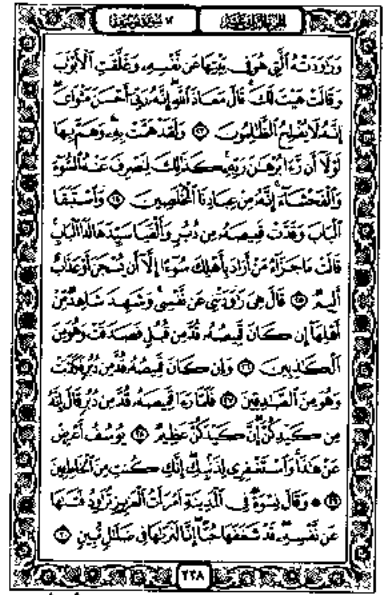 الجزء الثاني عشر ١٢ سورة يوسف
وَرَٰوَدَتْهُ ٱلَّتِي هُوَ فِي بَيْتِهَا عَن نَّفْسِهِۦ وَغَلَّقَتِ ٱلْأَبْوَٰبَ
وَقَالَتْ هَيْتَ لَكَ ۚ قَالَ مَعَاذَ ٱللَّهِ ۖ إِنَّهُۥ رَبِّيٓ أَحْسَنَ مَثْوَايَ ۖ
إِنَّهُۥ لَا يُفْلِحُ ٱلظَّٰلِمُونَ ٢٣ وَلَقَدْ هَمَّتْ بِهِۦ ۖ وَهَمَّ بِهَا
لَوْلَآ أَن رَّءَا بُرْهَٰنَ رَبِّهِۦ ۚ كَذَٰلِكَ لِنَصْرِفَ عَنْهُ ٱلسُّوٓءَ
وَٱلْفَحْشَآءَ ۚ إِنَّهُۥ مِنْ عِبَادِنَا ٱلْمُخْلَصِينَ ٢٤ وَٱسْتَبَقَا
ٱلْبَابَ وَقَدَّتْ قَمِيصَهُۥ مِن دُبُرٍ وَأَلْفَيَا سَيِّدَهَا لَدَا ٱلْبَابِ ۚ
قَالَتْ مَا جَزَآءُ مَنْ أَرَادَ بِأَهْلِكَ سُوٓءًا إِلَّآ أَن يُسْجَنَ أَوْ عَذَابٌ
أَلِيمٌ ٢٥ قَالَ هِيَ رَٰوَدَتْنِي عَن نَّفْسِي ۚ وَشَهِدَ شَاهِدٌ مِّنْ
أَهْلِهَآ إِن كَانَ قَمِيصُهُۥ قُدَّ مِن قُبُلٍ فَصَدَقَتْ وَهُوَ مِنَ
ٱلْكَٰذِبِينَ ٢٦ وَإِن كَانَ قَمِيصُهُۥ قُدَّ مِن دُبُرٍ فَكَذَبَتْ
وَهُوَ مِنَ ٱلصَّٰدِقِينَ ٢٧ فَلَمَّا رَءَا قَمِيصَهُۥ قُدَّ مِن دُبُرٍ قَالَ إِنَّهُۥ
مِن كَيْدِكُنَّ ۖ إِنَّ كَيْدَكُنَّ عَظِيمٌ ٢٨ يُوسُفُ أَعْرِضْ
عَنْ هَٰذَا ۚ وَٱسْتَغْفِرِي لِذَنۢبِكِ ۖ إِنَّكِ كُنتِ مِنَ ٱلْخَاطِـِٔينَ
٢٩ ۞ وَقَالَ نِسْوَةٌ فِي ٱلْمَدِينَةِ ٱمْرَأَتُ ٱلْعَزِيزِ تُرَٰوِدُ فَتَىٰهَا
عَن نَّفْسِهِۦ ۖ قَدْ شَغَفَهَا حُبًّا ۖ إِنَّا لَنَرَىٰهَا فِي ضَلَٰلٍ مُّبِينٍ ٣٠
٢٣٨